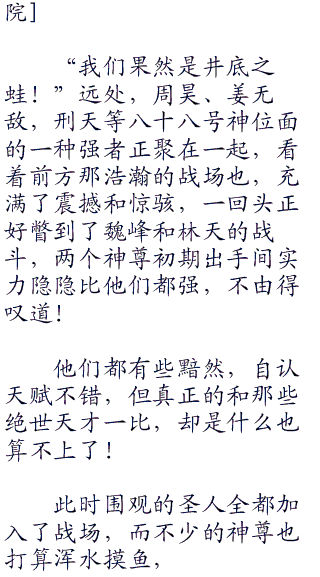 院]
“我们果然是井底之
蛙！”远处，周昊、姜无
敌，刑天等八十八号神位面
的一种强者正聚在一起，看
着前方那浩瀚的战场也，充
满了震撼和惊骇，一回头正
好瞥到了魏峰和林天的战
斗，两个神尊初期出手间实
力隐隐比他们都强，不由得
叹道！
他们都有些黯然，自认
天赋不错，但真正的和那些
绝世天才一比，却是什么也
算不上了！
此时围观的圣人全都加
入了战场，而不少的神尊也
打算浑水摸鱼，